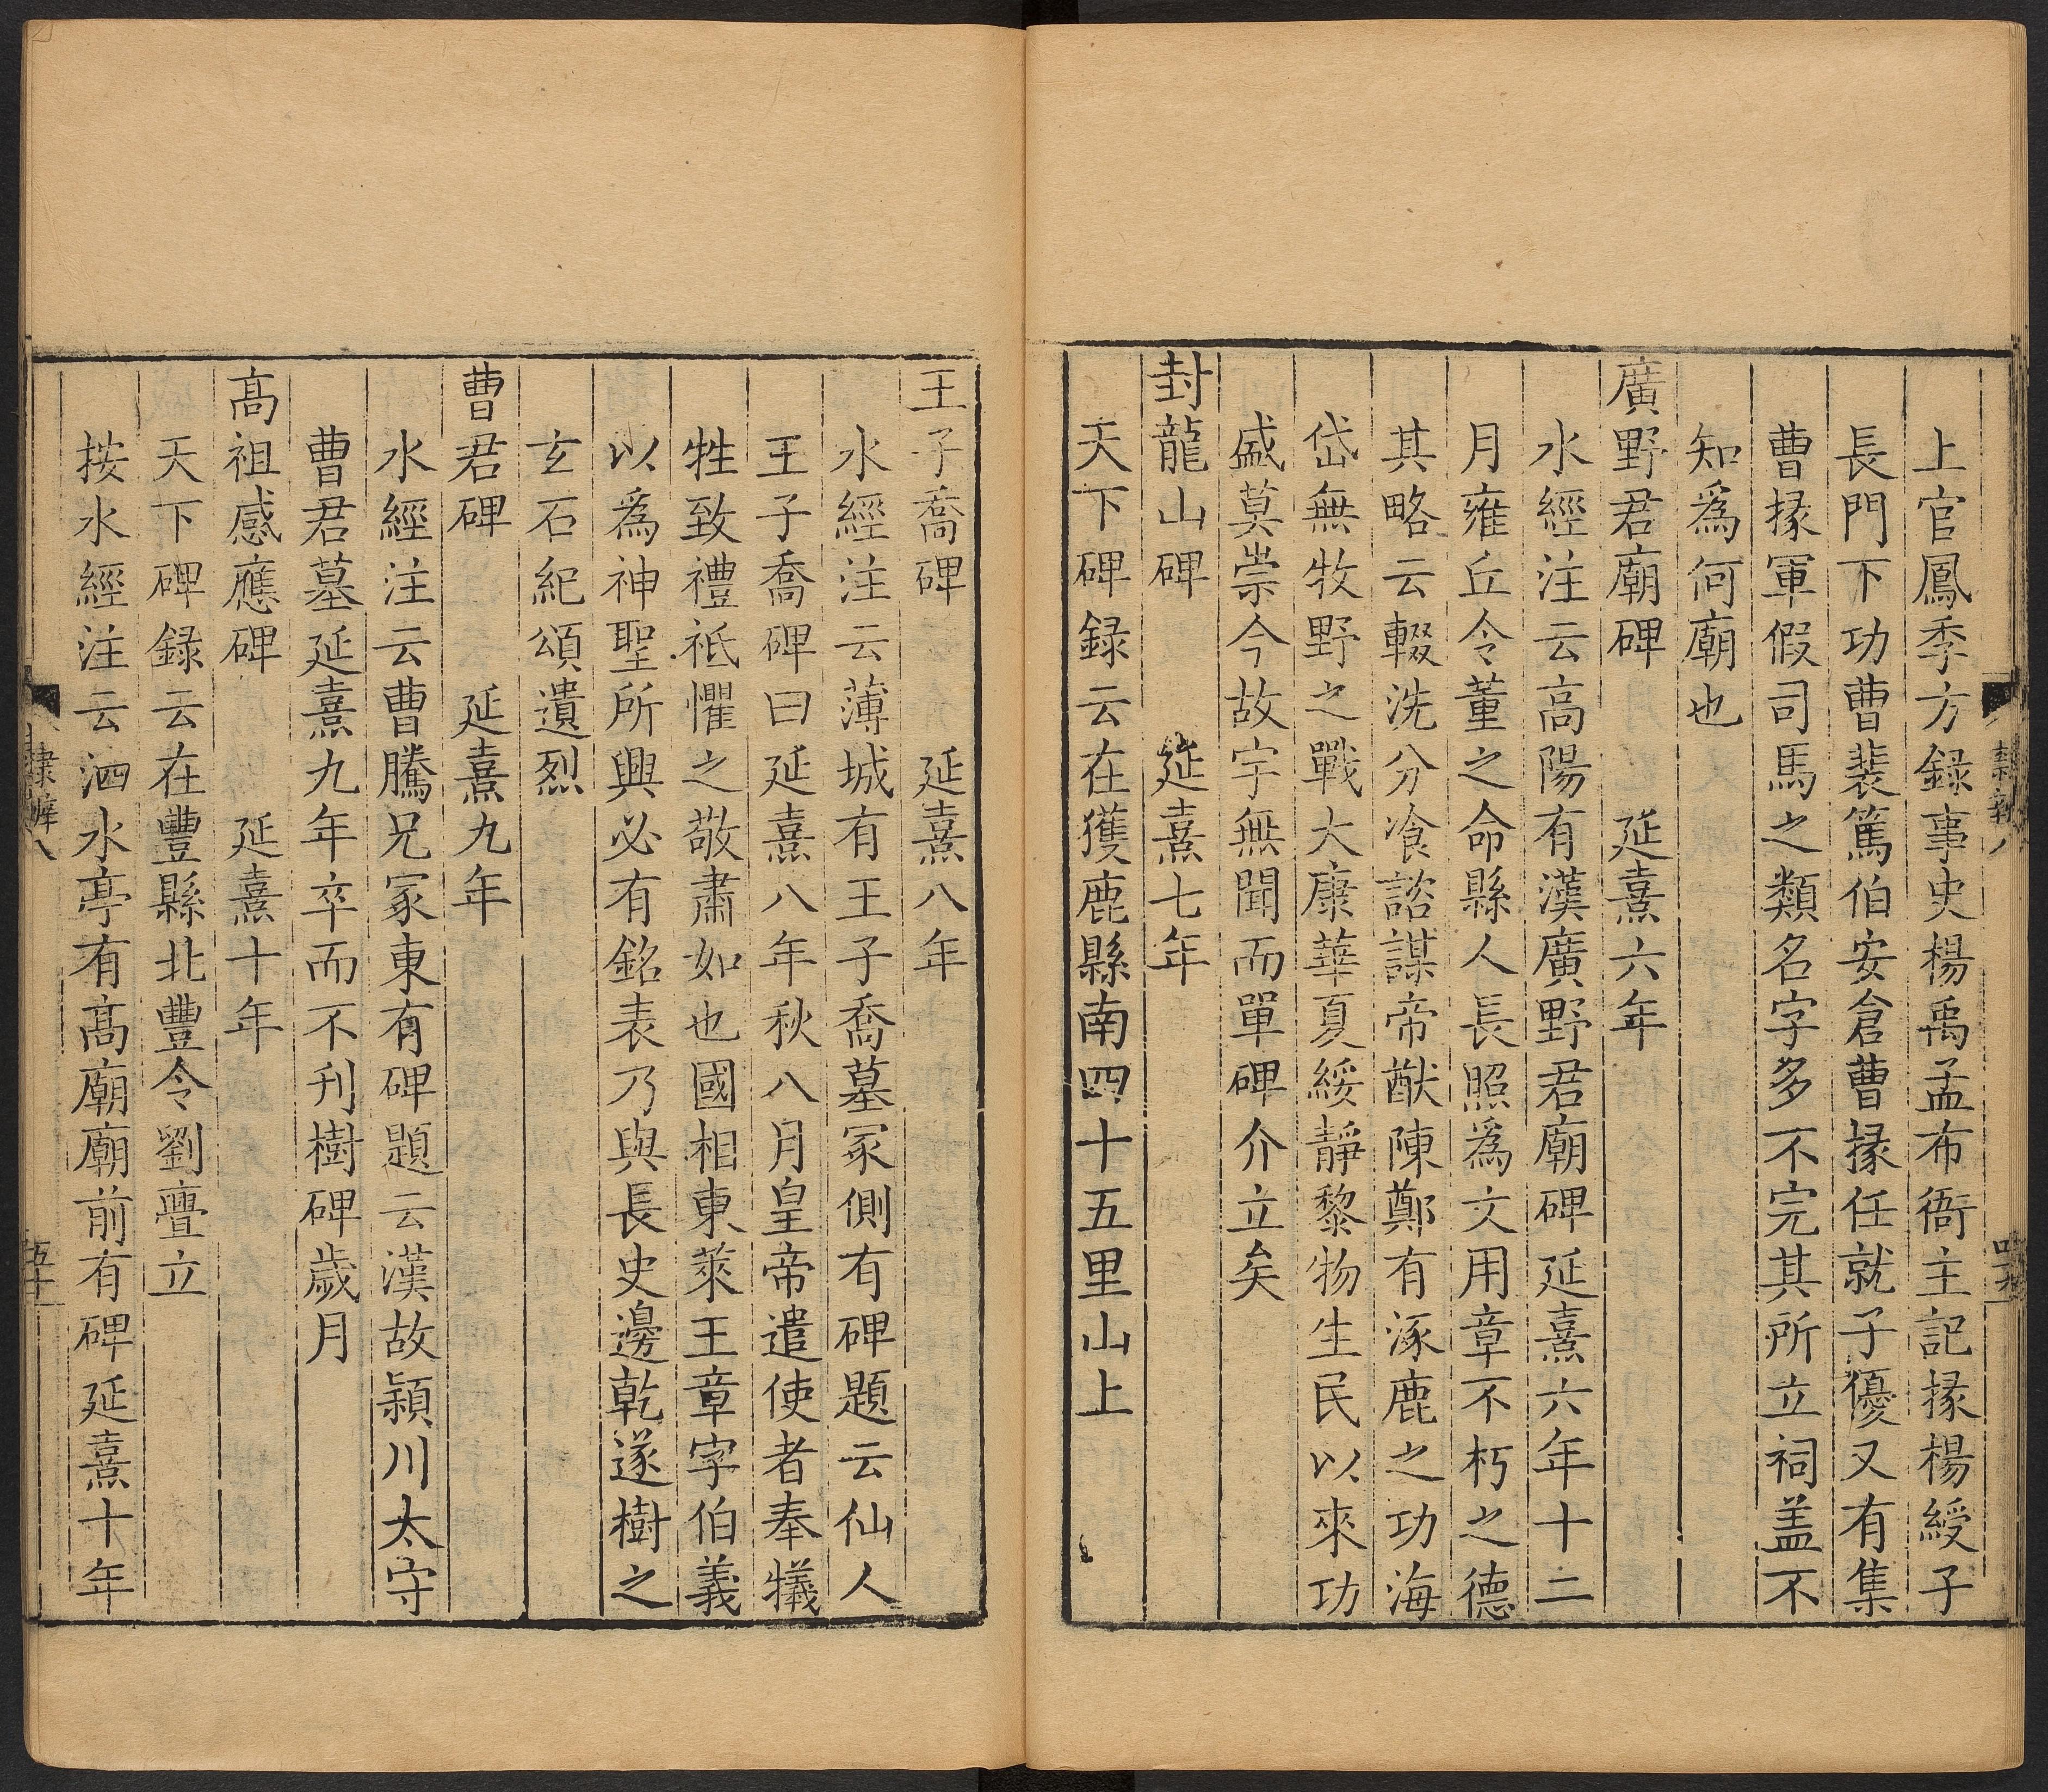 上官鳳季方録事史楊禹孟布衙主記掾楊綬子
長門下功曹裴篤伯安倉曹掾任就子優又有集
曹掾軍假司馬之類名字多不完其所立祠盖不
知爲何廟也
廣野君廟碑 延熹六年
水經注云高陽有漢廣野君廟碑延熹六年十二
月雍丘令董之命縣人長照爲文用章不朽之德
其略云輟洗分飡諮謀帝猷陳鄭有涿鹿之功海
岱無牧野之戰大康華夏綏靜黎物生民以來功
盛莫崇今故宇無聞而單碑介立矣
封龍山碑 延熹七年
天下碑録云在獲鹿縣南四十五里山上
隸辨八
王子喬碑 延熹八年
水經注云薄城有王子喬墓冢側有碑題云仙人
王子喬碑曰延熹八年秋八月皇帝遣使者奉犧
牲致禮祗懼之敬肅如也國相東萊王章字伯義
以爲神聖所興必有銘表乃與長史邊乾遂樹之
玄石紀頌遺烈
曹君碑 延熹九年
水經注云曹騰兄冢東有碑題云漢故潁川太守
曹君墓延熹九年卒而不刊樹碑歲月
高祖感應碑 延熹十年
天下碑録云在豐縣北豐令劉亹立
按水經注云泗水亭有高廟廟前有碑延熹十年
隸辨八
五十